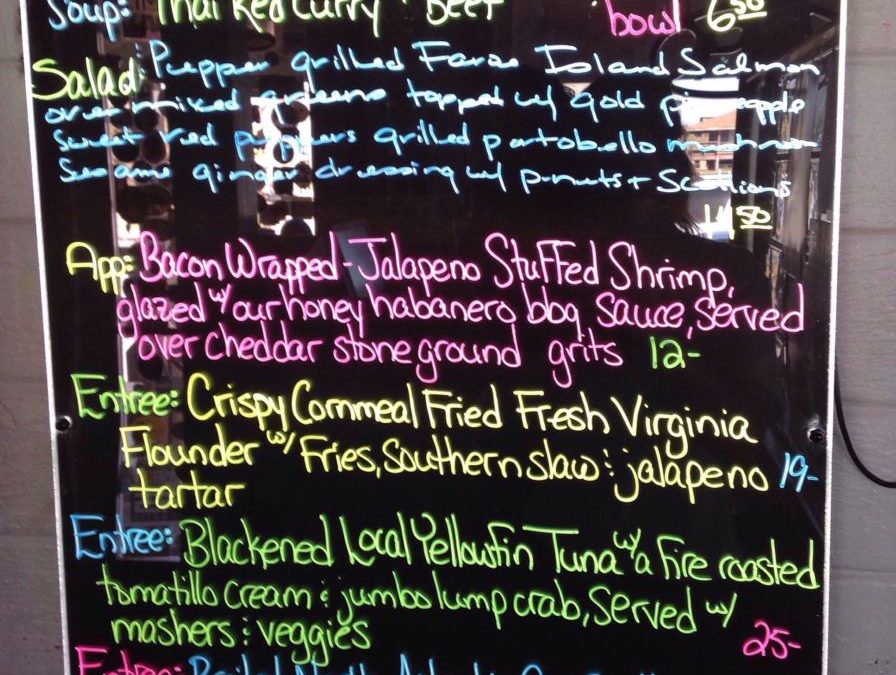 Soup: Thai Red Curry + Beef bowl 6 50
Salad: Pepper grilled Faroe Island Salmon
over mixed greens topped w/ gold pineapple
Sweet red peppers grilled portobello mushroom
Sesame ginger dressing w/ p-nuts + Scallions
14 50
App: Bacon Wrapped-Jalapeno Stuffed Shrimp,
glazed w/ our honey habanero bbq sauce, served
over cheddar stone ground grits 12-
Entree: Crispy Cornmeal Fried Fresh Virginia
Flounder w/ Fries, Southern slaw & jalapeno 19-
tartar
Entree: Blackened Local Yellowfin Tuna w/ a fire roasted
tomatillo cream & jumbo lump crab, Served w/
mashers & veggies 25-
Entree: Broiled North